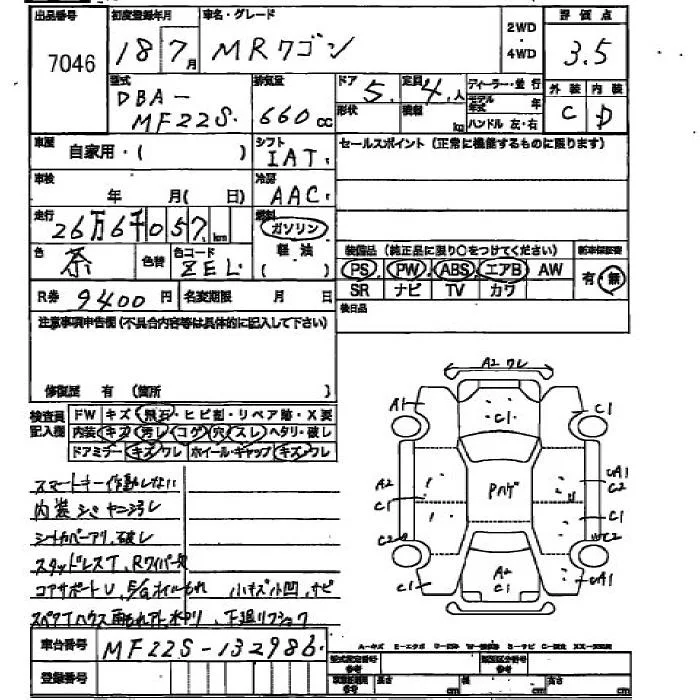 出品番号 初度登録年月 車名・グレード 2WD 評価点
7046 18 7月 MRワゴン 4WD 3.5
型式 排気量 ドア 定員 ディーラー・並行 外装 内装
DBA-MF22S 660cc 5 4人 モデル年式 年 C D
形状 積載 kg ハンドル 左・右
車歴 自家用・( ) シフト IAT セールスポイント(正常に機能するものに限ります)
車検 年 月( 日) 冷房 AAC
走行 26万6千057km 燃料 ガソリン
軽油
( )
色 茶 色替 色コード ZEL
装備品(純正品に限り○をつけてください) 新車保証書
PS PW ABS エアB AW 有・無
SR ナビ TV カワ
R券 9400円 名変期限 月 日 後日品
注意事項申告欄(不具合内容等は具体的に記入して下さい)
修復歴 有 (箇所 )
検査員記入欄 FW キズ・飛石・ヒビ割・リペア跡・X要
内装 キズ・汚レ・コゲ・穴・スレ・ヘタリ・破レ
ドアミラー キズ・ワレ ホイール・キャップ キズ・ワレ
スマートキー作動しない
内装シミ ヤニ汚レ
シートカバーアリ、破レ
スタッドレスT、Rワイパー欠
コアサポートU, E/Gオイルもれ 小キズ小凹、サビ
下廻リ
車台番号 MF22S-132986
登録番号
A2 ワレ
A1 C1 C1
A2 C1 Pハゲ A1 C2
C1
C2 C2
C1 A2 C1 A1
A-キズ E-エクボ
長さ cm 幅 cm 高さ cm